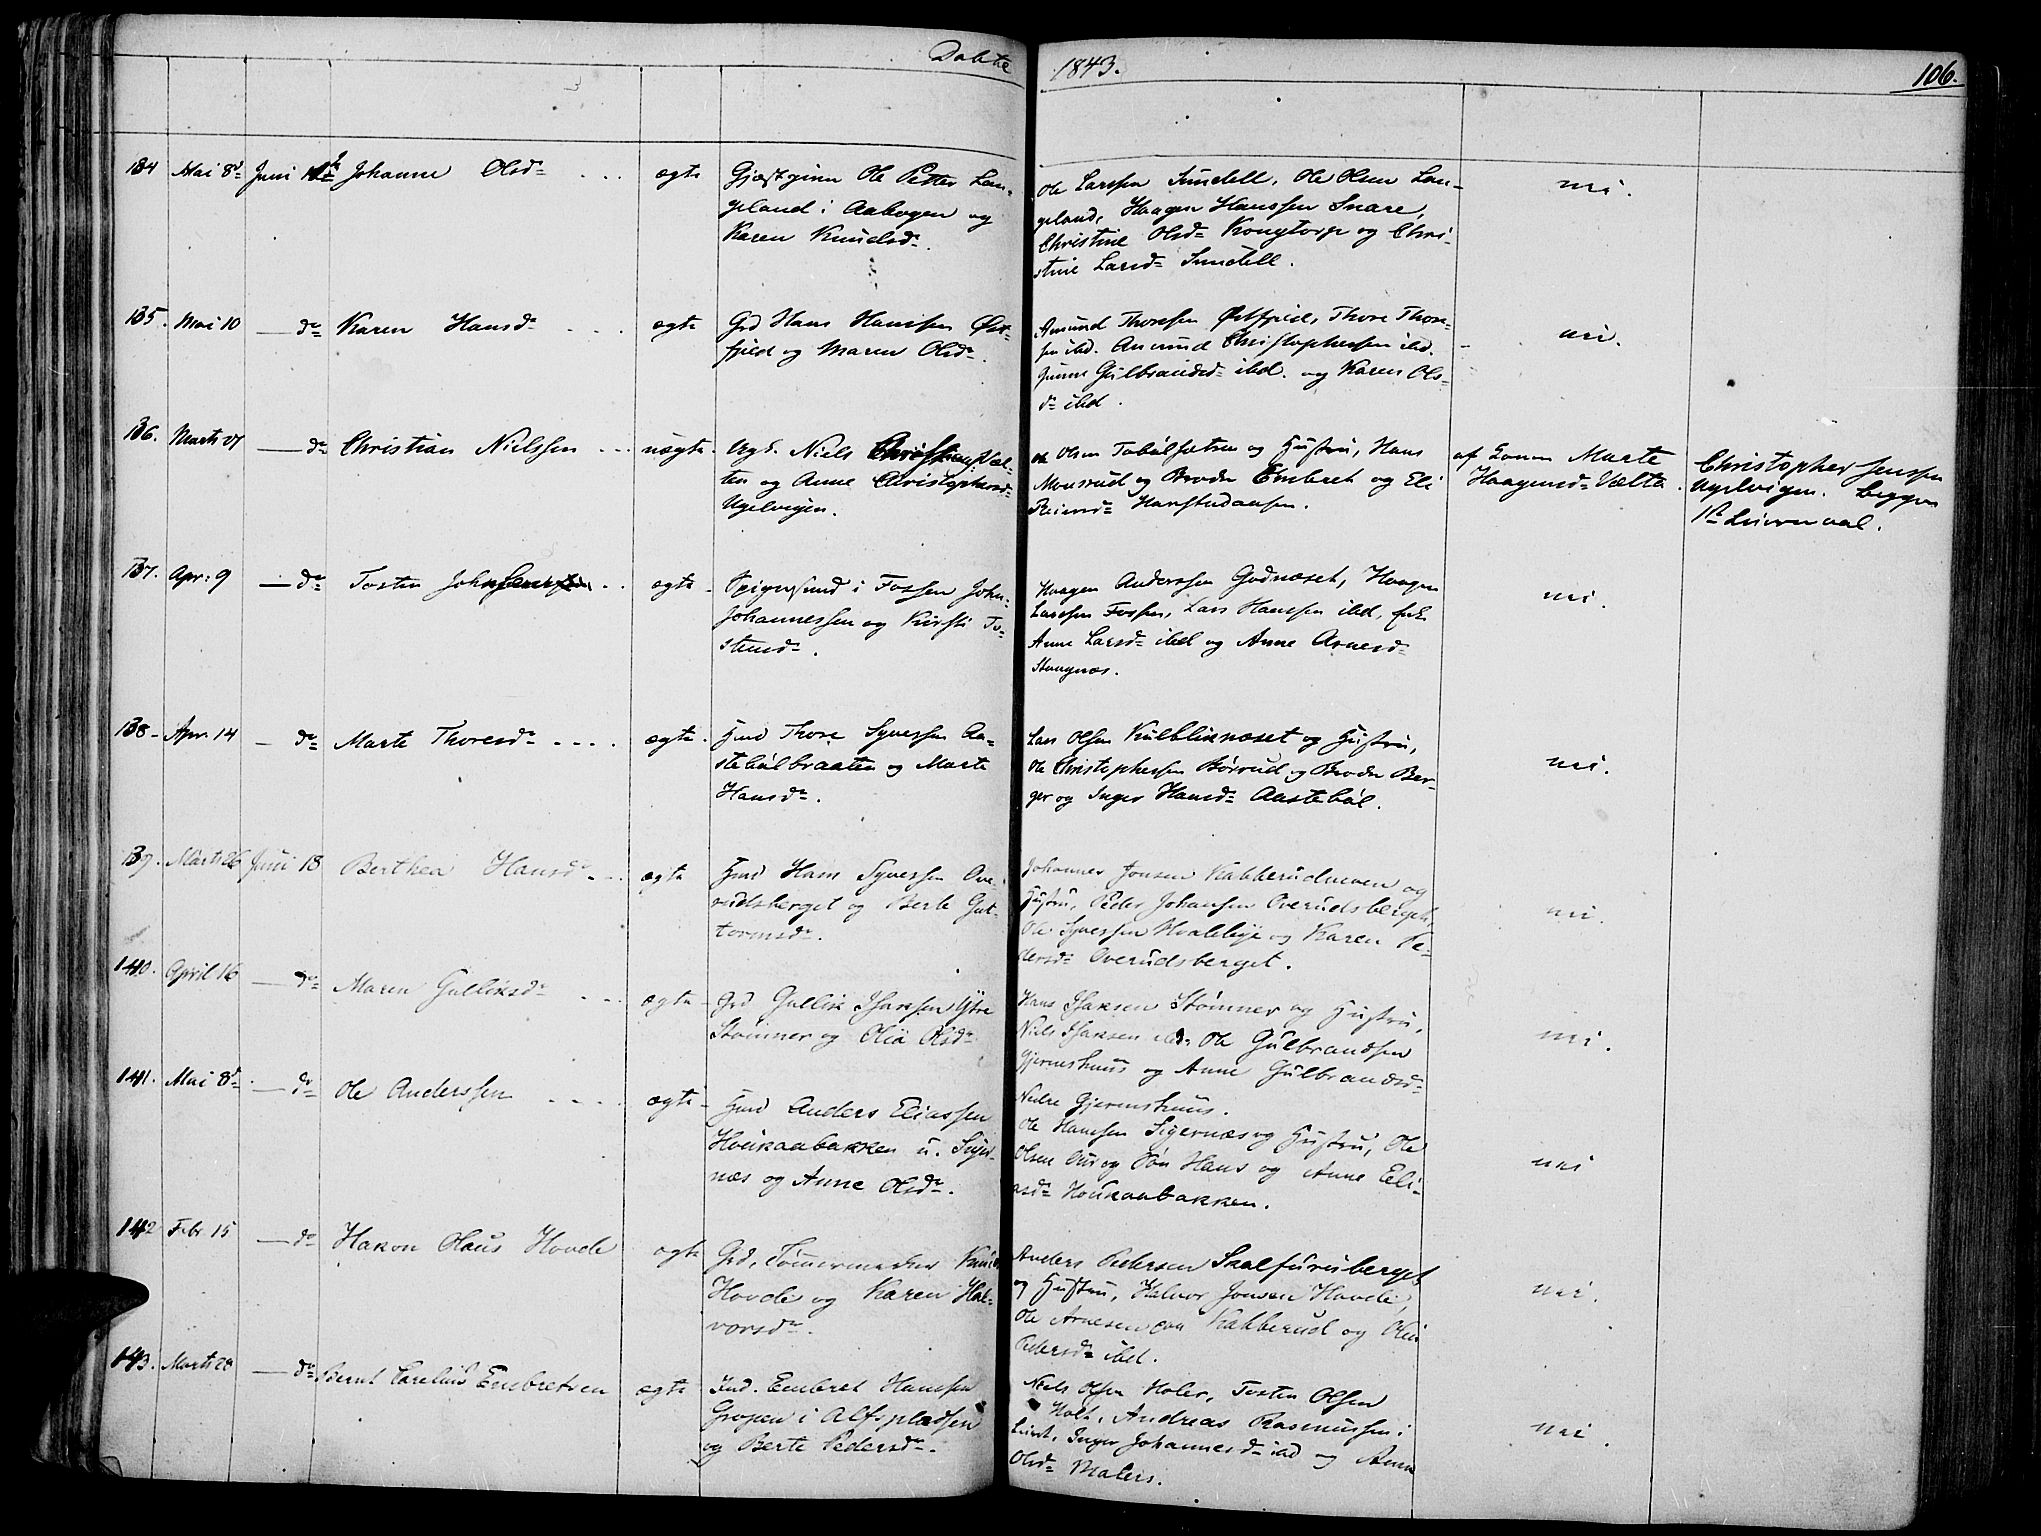 Døbte 1843. 106.
134 Mai 8d Juni 11te Johanne Olsdr ægte Gjæstgiver Ole Petter Lan-
geland i Aabogen og
Karen Knudsdr.
Ole Larssen Sundell, Ole Olsen Lan-
geland, Haagen Hanssen Snare,
Christine Olsdr Kongtorp og Chri-
stine Larsdr Sundell.
nei.
135. Mai 10 do Karen Hansdr ægte Grd Hans Hanssen Øst-
fjeld og Maren Olsdr.
Amund Thoresen Østfjeld, Thore Thore-
sen ibd. Amund Christophersen ibd.
Gulbrandsdr ibd. og Karen Ols-
dr ibd.
nei.
136. Marts 27 do Christian Nielssen uægte Ungk. Niels Væl-
ten og Anne Christophersdr
Ugelvigen.
Olsen Tabølsætren og Hustru, Hans
Monsrud og Broder Embret og Eli
Reiersdr
af Konen Marte
Haagensdr Vælta.
Christopher Jenssen
Ugelvigen. Begges
1ste Leiermaal.
137. Apr: 9 do Tosten Johnsen ægte Opigersund i Fossen John
Johannessen og Kirsti To-
stensdr.
Haagen Anderssen Godnæset, Haagen
Larssen Fossen, Lars Hanssen ibd, Enk.
Anne Larsdr ibd og Anne Arnesdr
Stangnæs.
nei.
138 Apr. 14 do Marte Thoresdr ægte Hmd Thore Syverssen Aa-
stebølbraaten og Marte
Hansdr.
Lars Olsen Kulbliknæset og Hustru,
Ole Christophersen Børrud og Broder Ber-
ger og Inger Hansdr Aastebøl.
nei.
139. Marts 26 Juni 18 Berthea Hansdr ægte Hmd Hans Syverssen Ove-
rudsberget og Berte Gut-
tormsdr.
Johannes Jonsen Kabberudmoen og
Hustru, Peder Johansen Overudsberget,
Ole Syverssen Hvalebye og Karen Pe-
dersdr Overudsberget.
nei.
140. April 16 do Maren Gulliksdr ægte Grd Gullik Isaksen Ytre
Stømner og Olia Olsdr
Hans Isaksen Stømner og Hustru,
Niels Isaksen ibd. Ole Gulbrandsen
Gjermshuus og Anne Gulbrandsdr
Nedre Gjermshuus.
nei.
141. Mai 8d do Ole Anderssen ægte Hmd Anders Eliassen
Houkaabakken u. Siger-
næs og Anne Olsdr.
Ole Hanssen Sigernæs og Hustru, Ole
Olsen Aur og Søn Hans og Anne Eli-
asdr Houkaabakken.
nei
142 Febr 15 do Hakon Olaus Hovde ægte Grd, Tømmermerker Knud
Hovde og Karen Hal-
vorsdr.
Anders Pedersen Skalfuruberget
og Hustru, Halvor Jonsen Hovde,
Ole Arnesen paa Kabberud og Olia
Pedersdr ibd.
nei.
143. Marts 28 do Bernt Carelius Embretsen ægte Ind. Embret Hanssen
Gropen i Alfsplassen
og Berte Pedersdr.
Niels Olsen Moler, Tosten Olsen
Holt, Andreas Rasmussen i
Lundt, Inger Johannesdr ibd og Anne
Olsdr Malers.
nei.